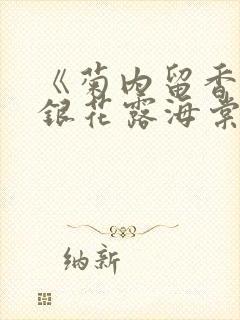 《菊内留香
銀花露海棠
纳新